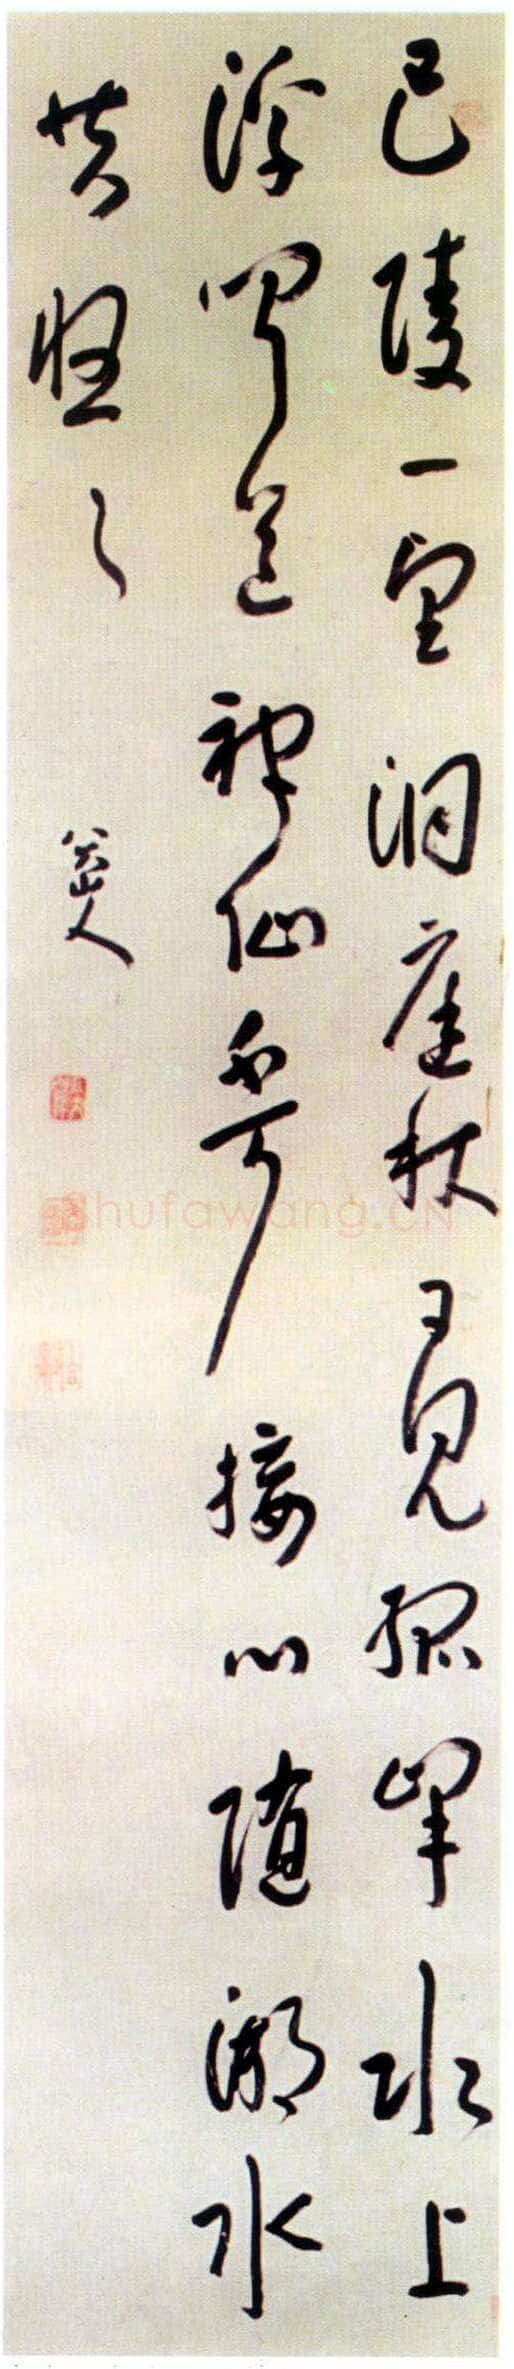 巴陵一望洞庭秋日見孤峰水上
浮聞道神仙不可接心隨湖水
共悠々
八大山人
shufawang.CN